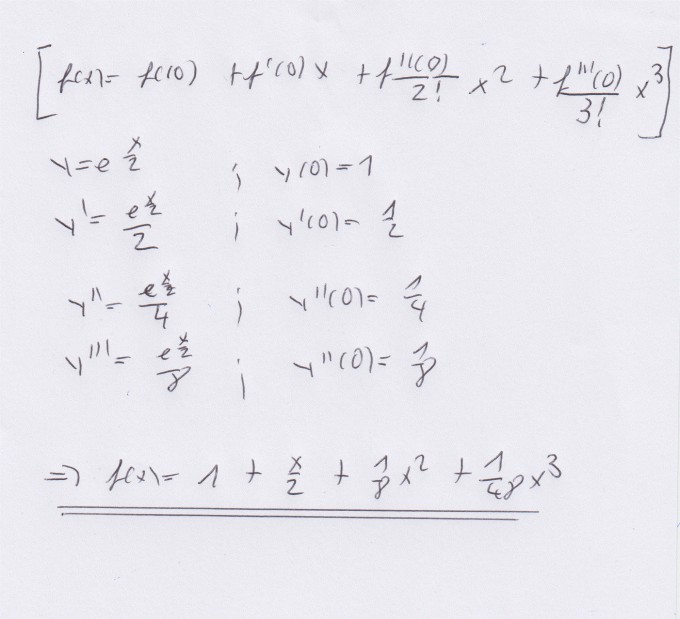 [f(x)= f(0) +f'(0) x + f''(0)/2! x² + f'''(0)/3! x³]
y=e^(x/2) ; y(0)=1
y'= e^(x/2)/2 ; y'(0)= 1/2
y''= e^(x/2)/4 ; y''(0)= 1/4
y'''= e^(x/2)/8 ; y''(0)= 1/8
=> f(x)= 1 + x/2 + 1/8 x² + 1/48 x³